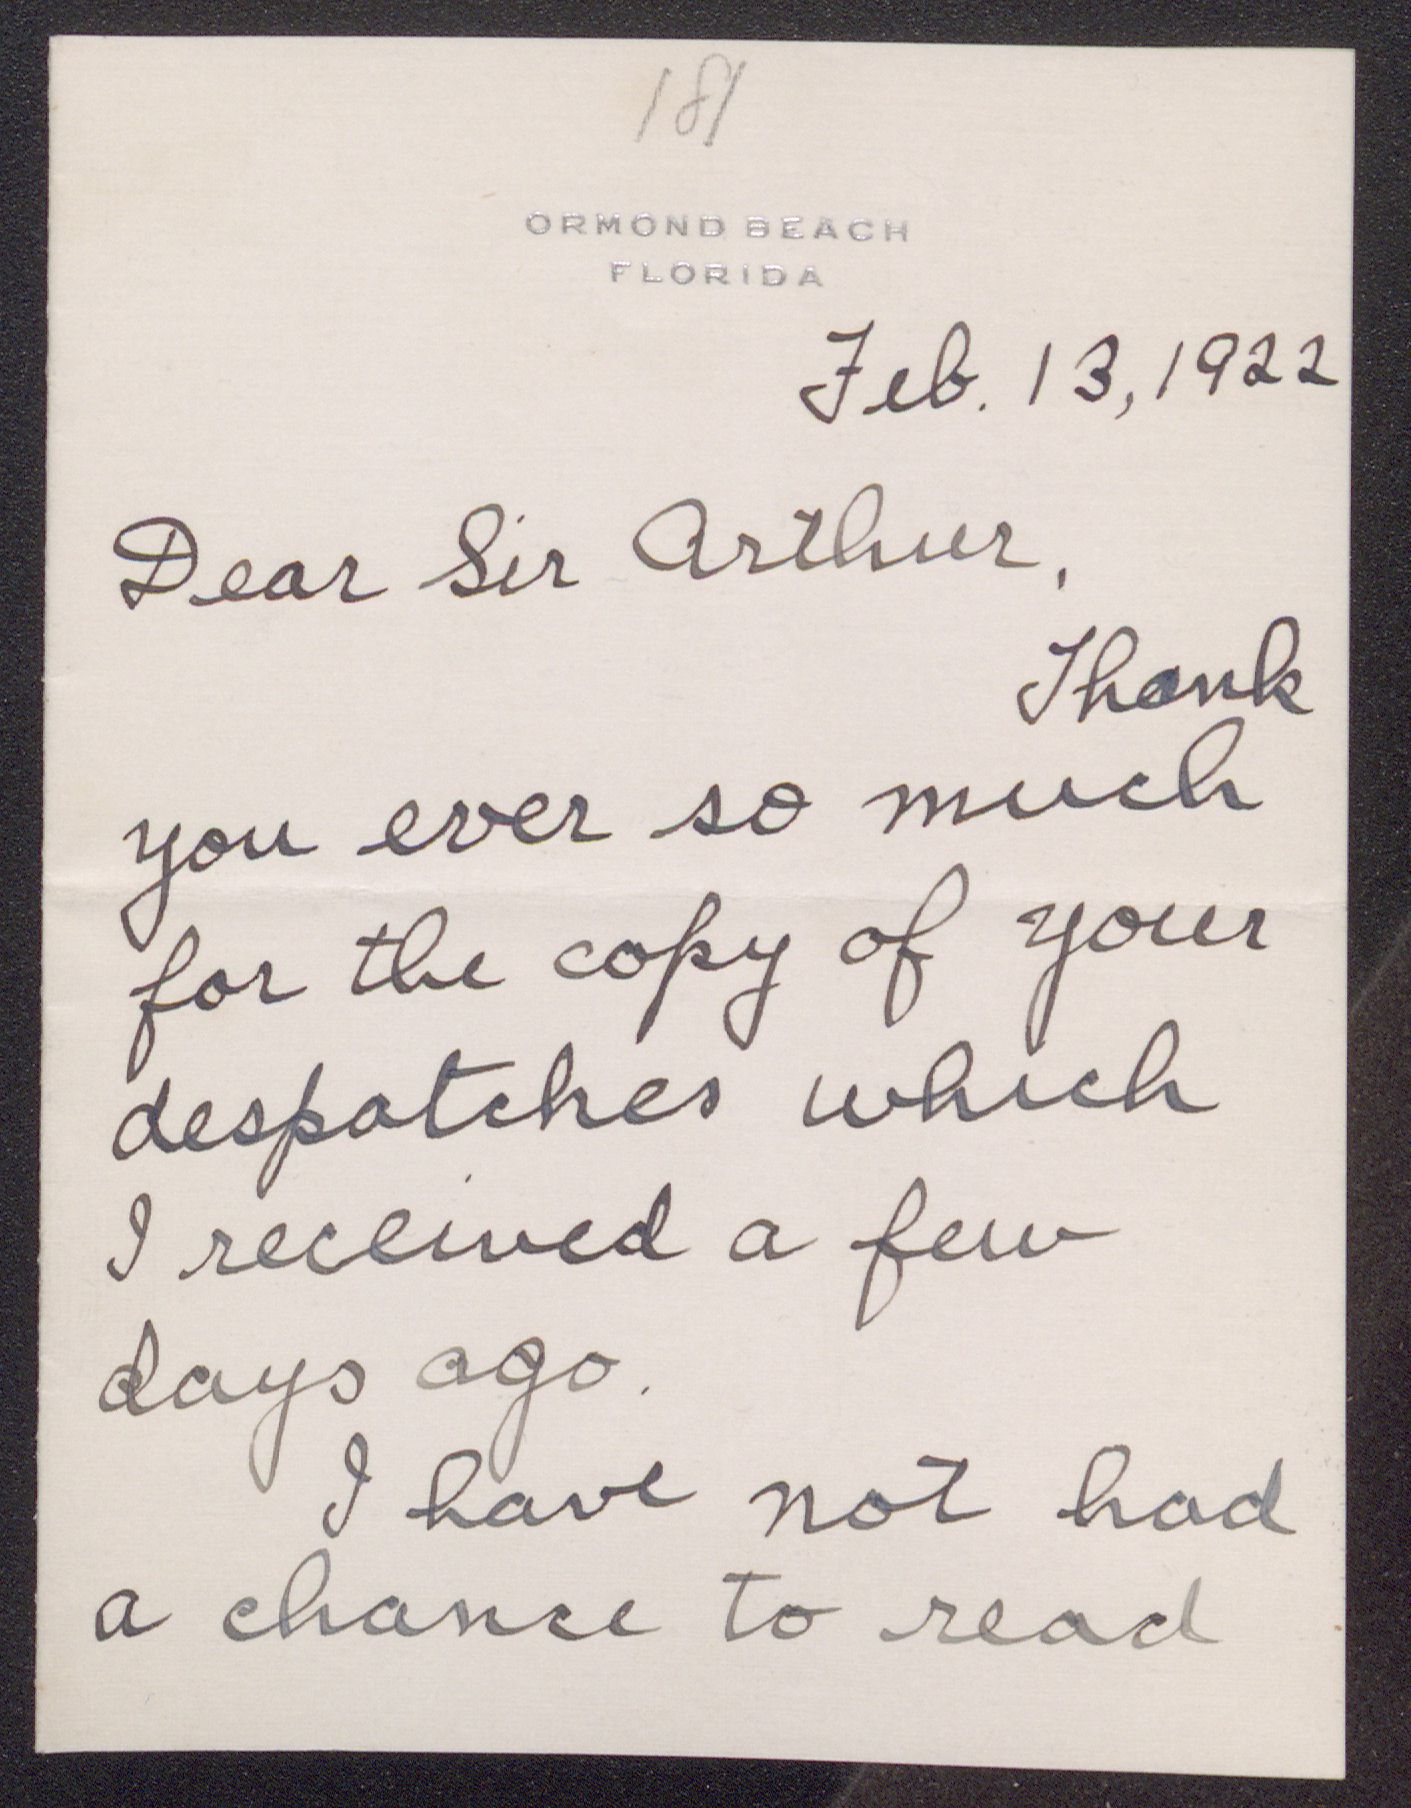 181
ORMOND BEACH
FLORIDA
Feb. 13, 1922
Dear Sir Arthur,
Thank
you ever so much
for the copy of your
despatches which
I received a few
days ago.
I have not had
a chance to read